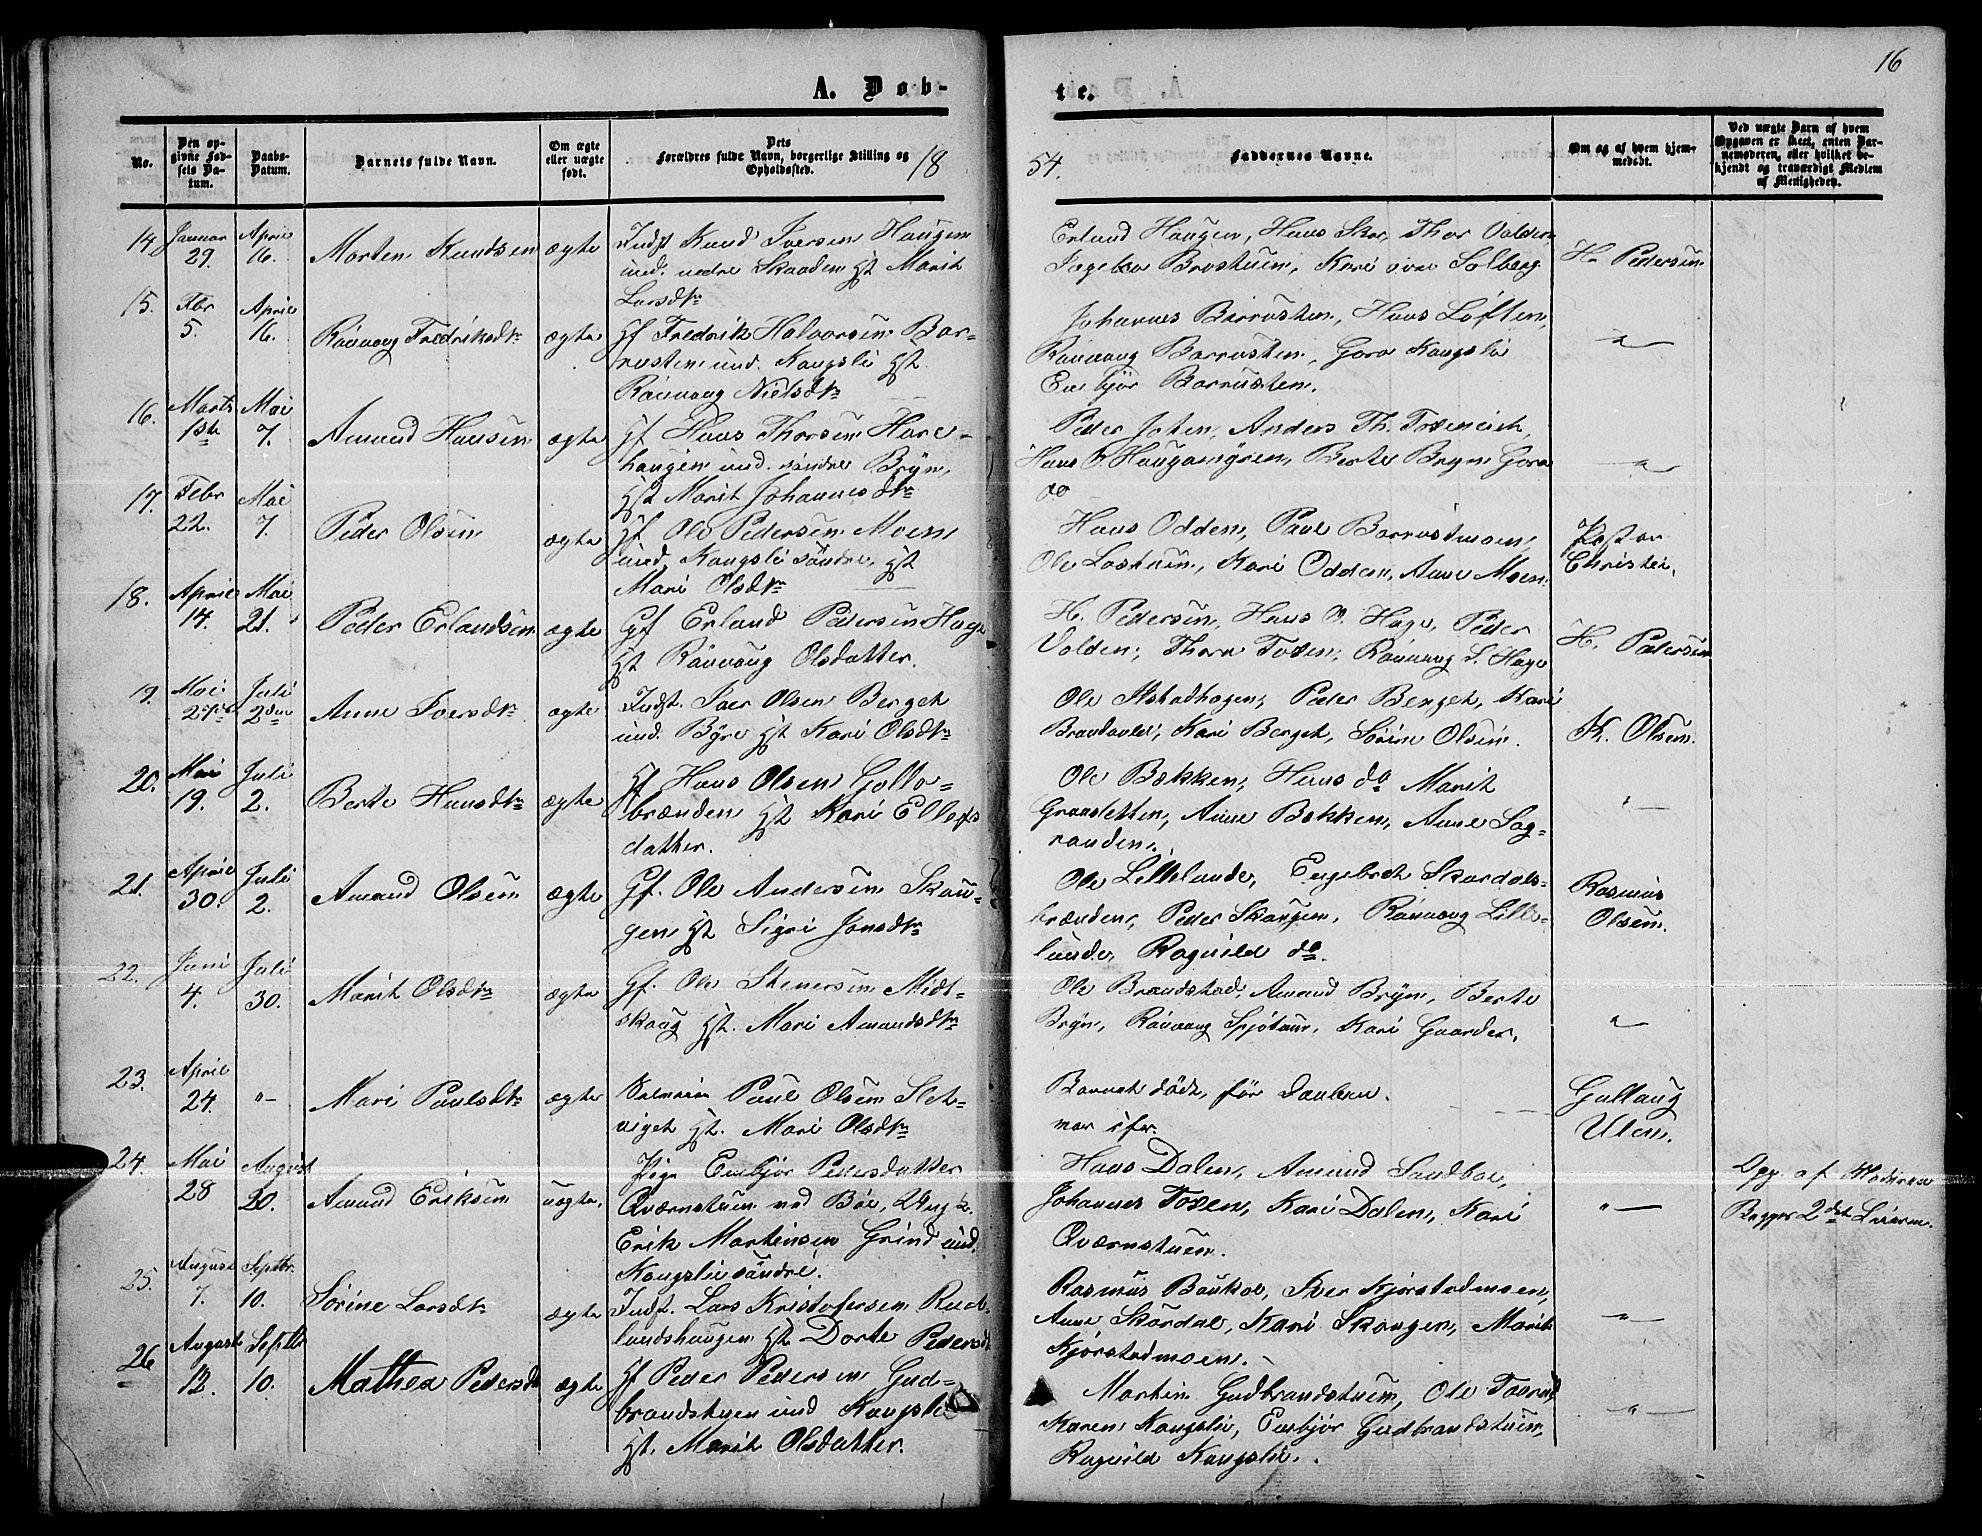 16
A. Døb-
te.
No.
Den op-
givne Fød-
sels Da-
tum.
Daabs-
Datum.
Barnets fulde Navn.
Om ægte
eller uægte
født.
Dets
Forældres fulde Navn, borgerlige Stilling og
Opholdssted.
18
54.
Faddernes Navne.
Om og af hvem hjem-
medøbt.
Ved uægte Barn af hvem
Opgaven er skeet, enten Bar-
nemoderen, eller hvilket be-
kjendt og troværdigt Medlem
af Menigheden.
14. Januar 29. April 16. Morten Knudsen ægte
Indst Knud Iversen Haugen
und. nedre Skaaden Hst Marit
Larsdtr
Erland Haugen, Hans Skor, Thor Volden
Ingebor Brostuen, Kari övre Solberg.
H. Pedersen
15. Fbr 5. April 16. Rönnaug Fredriksdtr ægte
Gf Fredrik Halvorsen Bar-
rusten und. Kongsli Hst.
Rönnaug Nielsdtr
Johannes Barrusten, Hans Löften,
Rönnaug Barrusten, Goro Kongsli
Embjör Barrusten.
"
16. Marts 1ste Mai 7. Amund Hansen ægte
Gf Hans Thorsen Hare-
haugen und. söndre Bryn,
Hst Marit Johannesdtr
Peder Joten, Anders Th.
Hans O. Haugamyren, Berte Bryn Goro
do
"
17. Febr 22. Mai 7. Peder Olsen ægte
Gf Ole Pedersen Moen
und. Kongsli söndre, Hst
Mari Olsdtr
Hans Odden, Paul Barrustmoen,
Ole Kari Odden, Anne Moen.
Pastor
Christie.
18. April 14. Mai 21. Peder Erlandsen ægte
Gf Erland Pedersen Hage
Hst Rönnaug Olsdatter.
H. Pedersen, Hans O. Hage, Peder
Volden, Thora Toxen, Rönnaug S. Hage
H. Pedersen
19. Mai 27de Juli 2den Anne Iversdtr ægte
Indst. Iver Olsen Berget
und. Byre Hst Kari Olsdtr
Ole Ilstadhagen, Peder Berget, Kari
Brandvold, Kari Berget, Sörine Olsen.
K. Olsen.
20. Mai 19. Juli 2. Berte Hansdtr ægte
Gf Hans Olsen Gollo-
brænden Hst Kari Ellefs
datter.
Ole Bækken, Hans do Marit
Graasletten, Anne Bekken, Anne Sag-
randen.
"
21. April 30. Juli 2. Amund Olsen ægte
Gf. Ole Andersen Skou-
gen Hst Sigri Jonsdtr
Ole Lillelunde, Engebret Skordals-
brænden, Peder Skougen, Rönnaug Lille-
lunde, Ragnild do.
Rasmus
Olsen.
22. Juni 4. Juli 30. Marit Olsdtr ægte
Gf. Ole Stenersen Midt-
skoug Hst. Mari Amundsdtr
Ole Brandstad, Amund Bryn, Berte
Bryn, Rönnaug Spjötaun, Kari Gaarder.
"
23. April 24. " Mari Paulsdtr ægte
Paul Olsen Slet-
viget Hst. Mari Olsdtr
Barnet döde för Daaben.
Gullaug
Ulen.
24. Mai 28 August 20. Amund Eriksen uægte.
Pige Embjör Pedersdatter
Qværnstuen ved Böe, Ung k.
Erik Martinsen Grind und.
Kongslie söndre.
Hans Dalen, Amund Sandboe,
Johannes Toxen, Kari Dalen, Kari
Qværnstuen.
"
Opg. af Moderen
Begges 2det Leierm.
25. August 7. Septbr. 10. Sörine Larsdtr ægte
Indst. Lars Kristofersen Rud-
landshaugen Hst Dorte Pedersd
Rasmus Iver Kjörstadmoen,
Anne Skurdal, Kari Skougen, Marit
Kjörstadmoen.
"
26 August 12. Septbr 10. Mathea Pedersd ægte
Gf Peder Pedersen Gud-
brandstuen und Kongsli
Hst. Marit Olsdatter.
Martin Gudbrandstuen, Ole
Karen Kongsli, Embjör Gudbrandstuen,
Ragnild Kongsli.
"